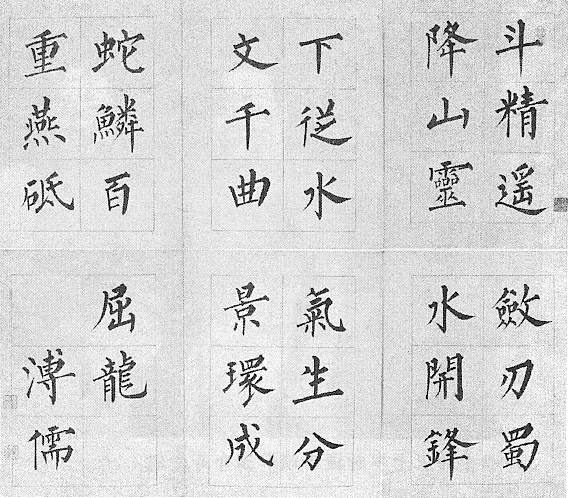 斗精遥
降山靈
下從水
文千曲
蛇鱗百
重燕砥
斂刃蜀
水開鋒
氣生分
景環成
屈龍
溥儒